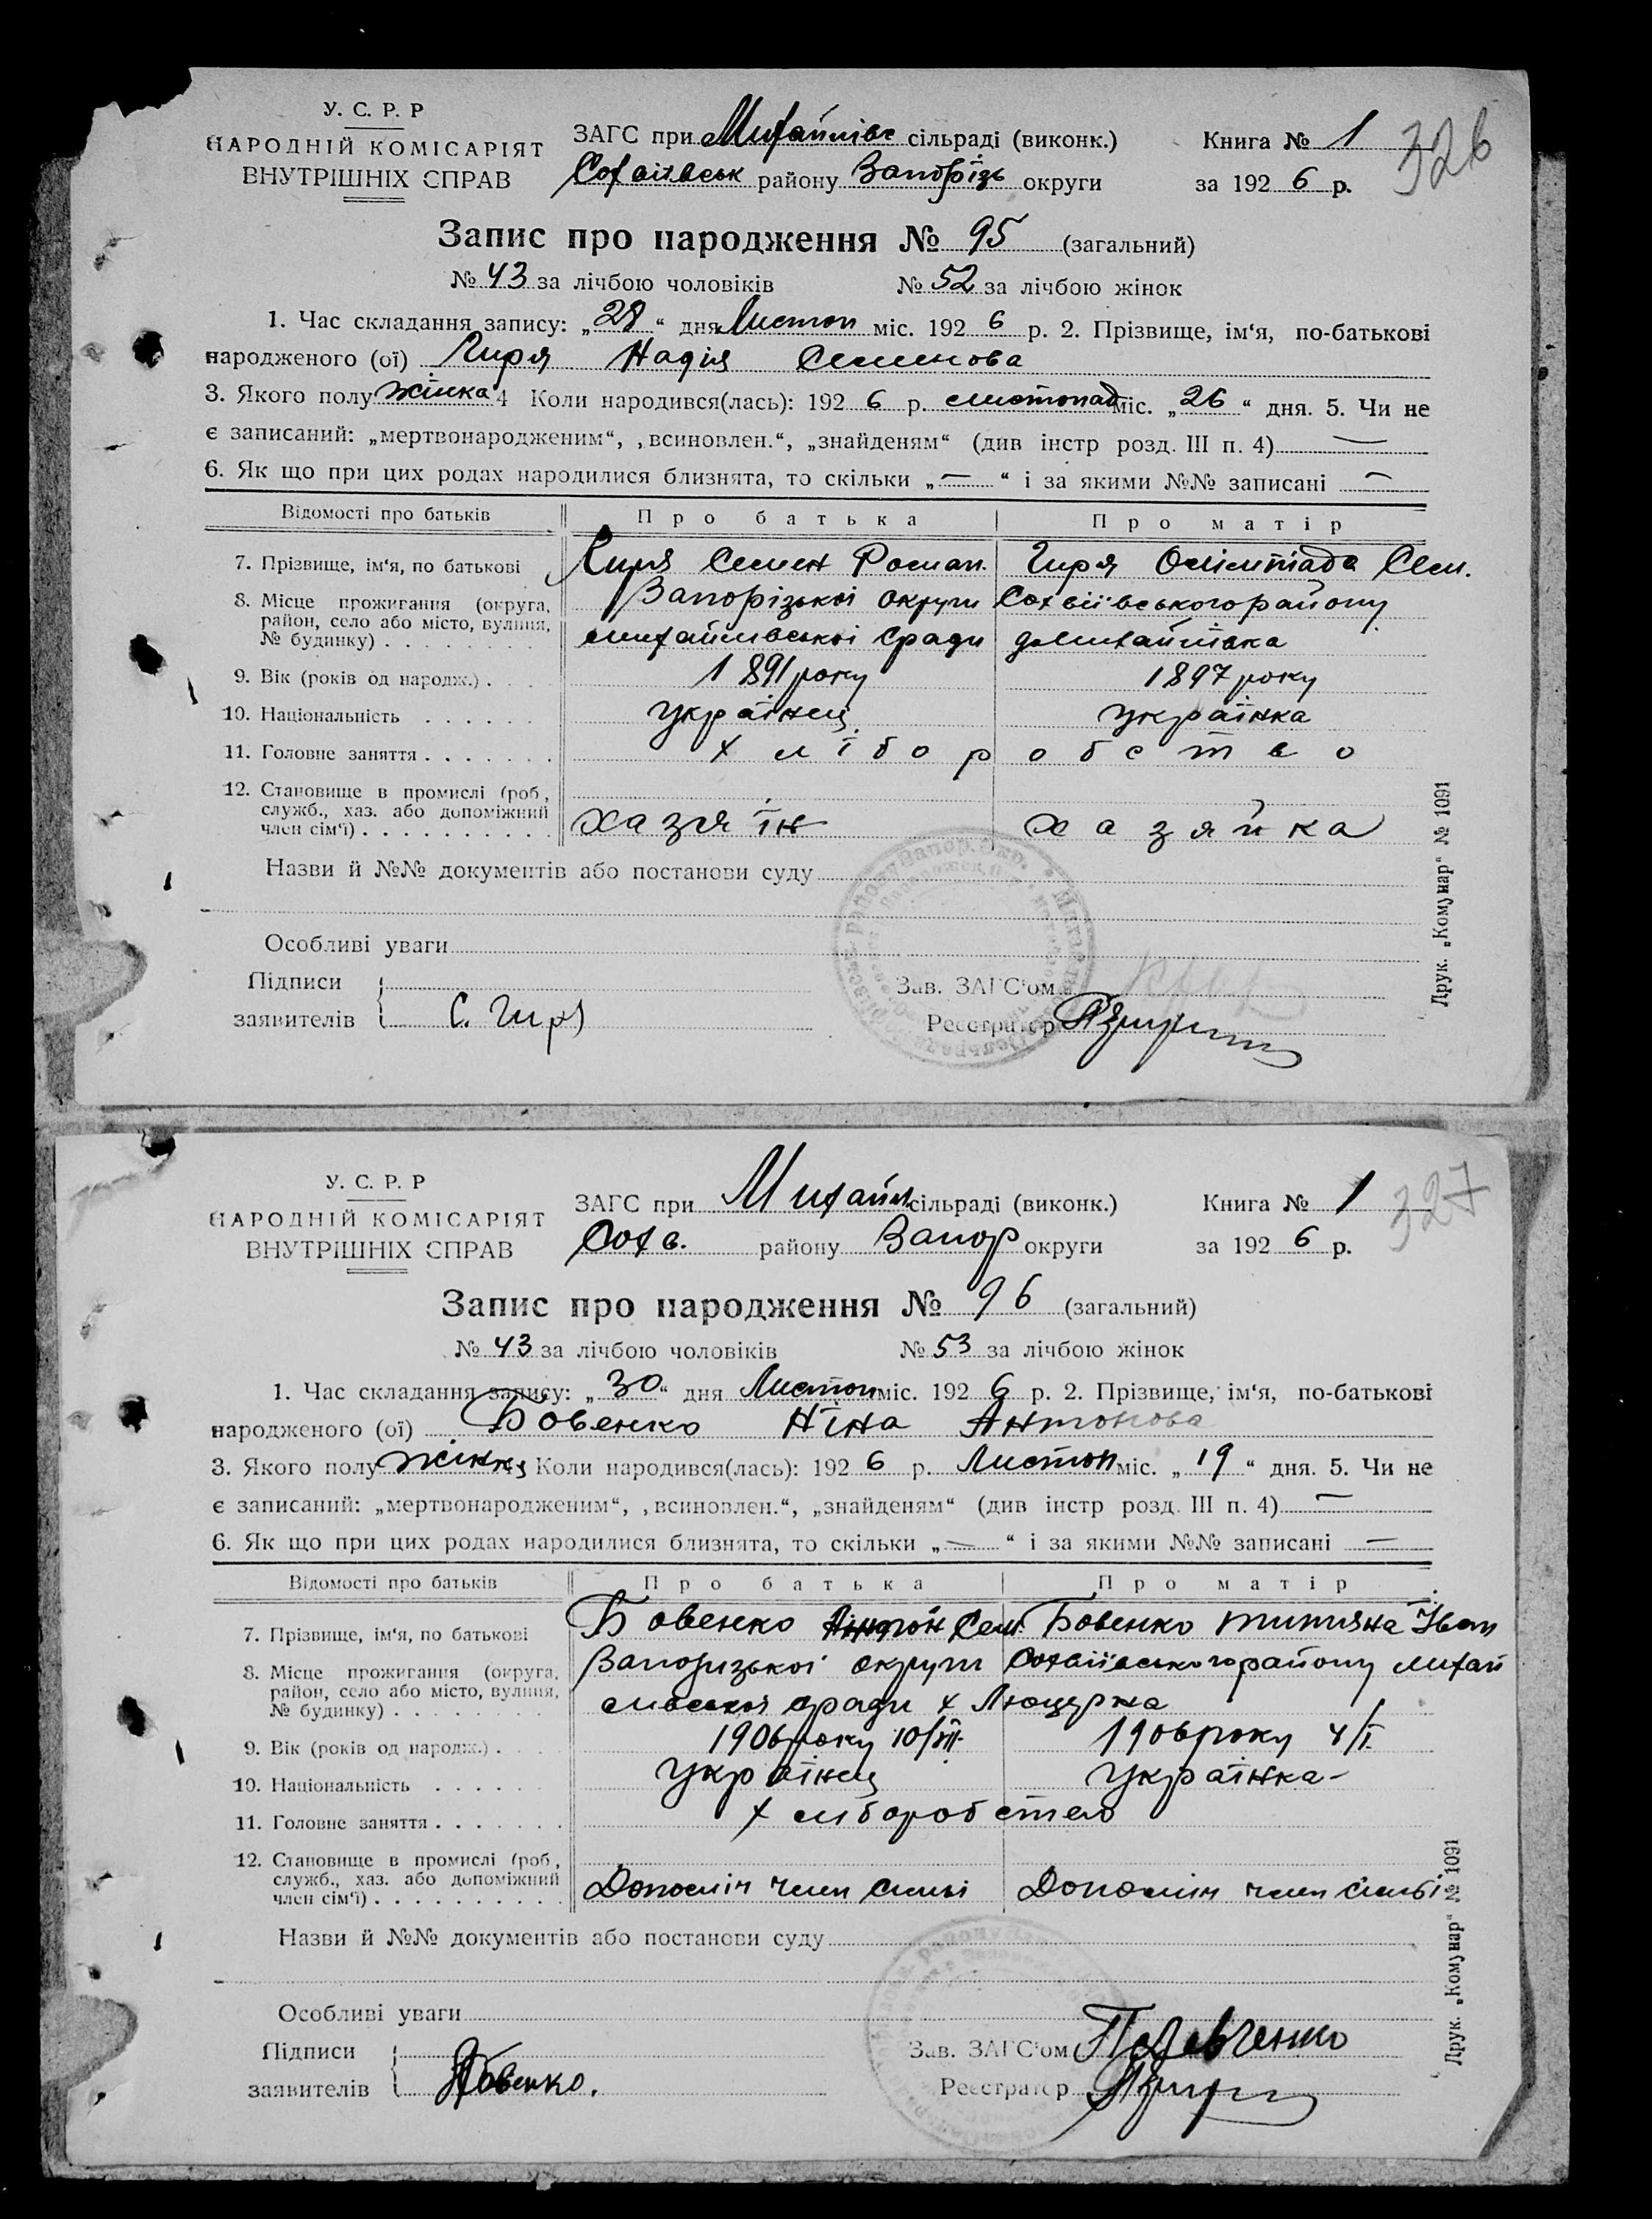 У. С. Р. Р
НАРОДНІЙ КОМІСАРІЯТ
ВНУТРІШНІХ СПРАВ
ЗАГС при Михайлівс сільраді (виконк.)
Софіївськ району Запоріз округи
Книга № 1
за 192 6 р.
326
Запис про народження № 95 (загальний)
№ 43 за лічбою чоловіків № 52 за лічбою жінок
1. Час складання запису: „28“ дня Листоп міс. 192 6 р. 2. Прізвище, ім‘я, по-батькові
народженого (ої) Гиря Надія Семенова
3. Якого полу жінка 4 Коли народився(лась): 192 6 р. листопад міс. „26“ дня. 5. Чи не
є записаний: „мертвонародженим“, „всиновлен.“, „знайденям“ (див інстр розд. III п. 4) —
6. Як що при цих родах народилися близнята, то скільки „—“ і за якими №№ записані —
Відомості про батьків Про батька Про матір
7. Прізвище, ім‘я, по батькові Гиря Семен Роман. Гиря Олімпіада Сем.
8. Місце прожигання (округа, район, село або місто, вулиця, № будинку) Запорізької округи Софіївського району
михайлівської сради Михайлівка
9. Вік (років од народж.) 1891 року 1897 року
10. Національність українец українка
11. Головне заняття хліборобство
12. Становище в промислі (роб., служб., хаз. або допоміжний член сім‘ї) хазяїн хазяйка
Назви й №№ документів або постанови суду
Особливі уваги
Підписи
заявителів С. Гиря
Зав. ЗАГС‘ом
Реєстратор
Друк. „Комунар“ № 1091
У. С. Р. Р
НАРОДНІЙ КОМІСАРІЯТ
ВНУТРІШНІХ СПРАВ
ЗАГС при Михайл сільраді (виконк.)
Соф в. району Запор округи
Книга № 1
за 192 6 р.
327
Запис про народження № 96 (загальний)
№ 43 за лічбою чоловіків № 53 за лічбою жінок
1. Час складання запису: „30“ дня Листоп міс. 192 6 р. 2. Прізвище, ім‘я, по-батькові
народженого (ої) Бовенко Ніна Антонова
3. Якого полу жінка Коли народився(лась): 192 6 р. Листоп міс. „19“ дня. 5. Чи не
є записаний: „мертвонародженим“, „всиновлен.“, „знайденям“ (див інстр розд. III п. 4) —
6. Як що при цих родах народилися близнята, то скільки „—“ і за якими №№ записані —
Відомості про батьків Про батька Про матір
7. Прізвище, ім‘я, по батькові Бовенко Антон Сем. Бовенко Іван
8. Місце прожигання (округа, район, село або місто, вулиця, № будинку) Запоризької округи Софіївського району михай
лівської сради х Люцерна
9. Вік (років од народж.) 1906 року 1906 року 4/I
10. Національність українец українка
11. Головне заняття хліборобство
12. Становище в промислі (роб., служб., хаз. або допоміжний член сім‘ї) Допоміж член сімьі Допоміж член сімьі
Назви й №№ документів або постанови суду
Особливі уваги
Підписи
заявителів Бовенко.
Зав. ЗАГС‘ом
Реєстратор
Друк. „Комунар“ № 1091